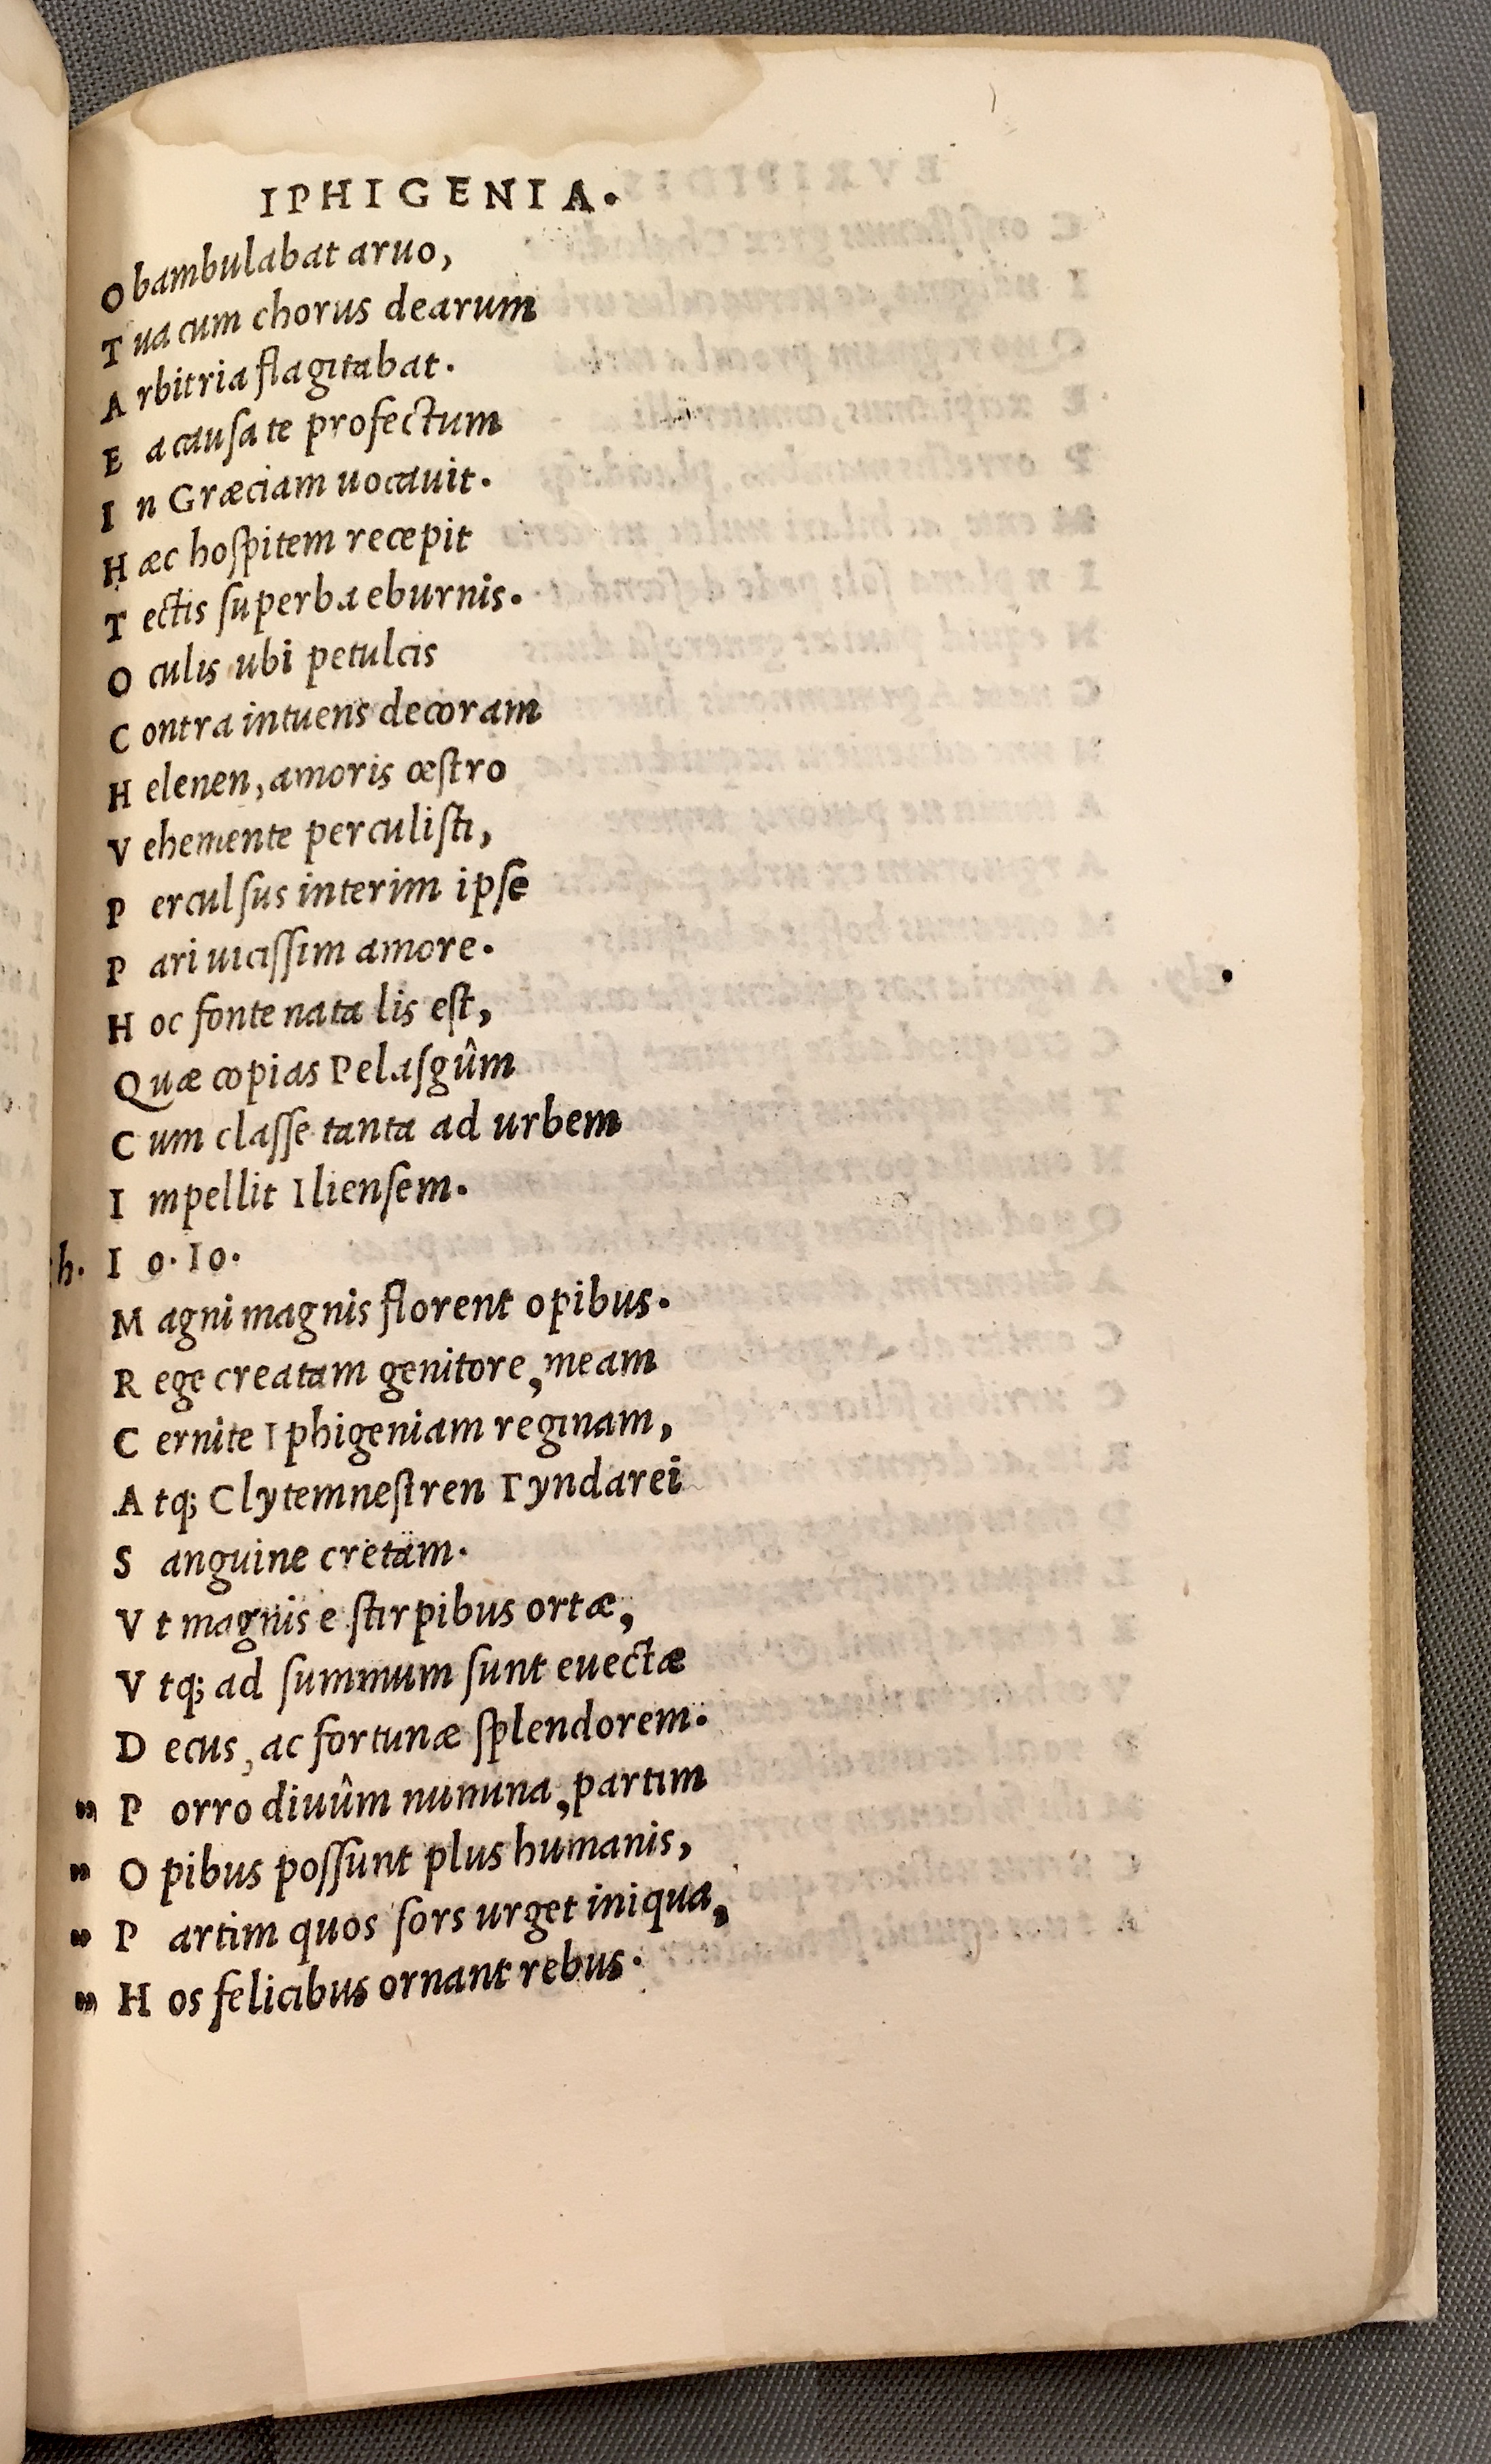 IPHIGENIA.
Obambulabat aruo,
Tua cum chorus dearum
Arbitria flagitabat.
Ea causa te profectum
In Græciam uocauit.
Hæc hospitem recepit
Tectis superba eburnis.
Oculis ubi petulcis
Contra intuens decoram
Helenen, amoris œstro
Vehemente perculisti,
Perculsus interim ipse
Pari uicissim amore.
Hoc fonte nata lis est,
Quæ copias Pelasgûm
Cum classe tanta ad urbem
Impellit Iliensem.
h. Io. Io.
Magni magnis florent opibus.
Rege creatam genitore, meam
Cernite Iphigeniam reginam,
Atq; Clytemnestren Tyndarei
Sanguine cretam.
Vt magnis e stirpibus ortæ,
Vtq; ad summum sunt euectæ
Decus, ac fortunæ splendorem.
" Porro diuûm numina, partim
" Opibus possunt plus humanis,
" Partim quos sors urget iniqua,
" Hos felicibus ornant rebus.